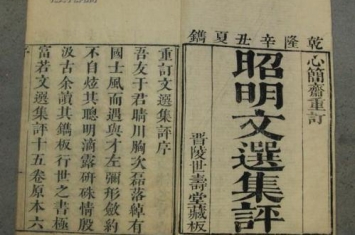 乾隆辛丑夏鐫
心簡齋重訂
昭明文選集評
晋陵世壽堂藏板
重訂文選集評序
吾友于君晴川胸次磊落綽有
國士風而遇與才左彌形斂約
不自炫其聰明滴露研硃情殷
汲古余讀其鐫板行世之書極
富若文選集評十五卷原本六